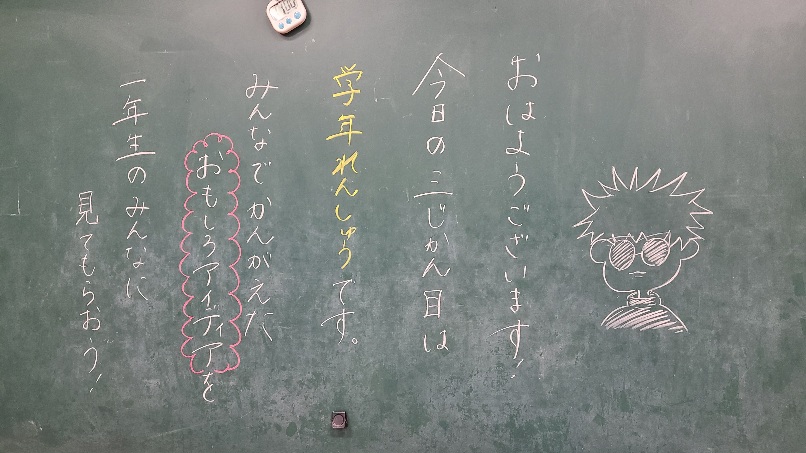 おはようございます!
今日の三じかん目は
学年れんしゅうです。
みんなでかんがえた
おもしろアイディアを
一年生のみんなに
見てもらおう!